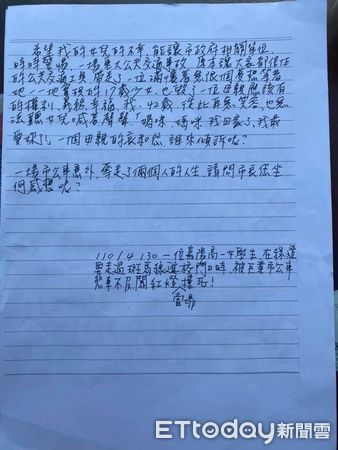 希望我的女兒的不幸,能讓市政府相關單位
時時警惕,一場重大公共交通事故,原本讓大家都信任
的公共交通工具,帶走了一位滿懷著無限個夢想等著
她一一地實現的17歲少女,也毀了一位母親應該有
的權利、義務、幸福,我,42歲,從此再無笑容,也無
法聽女兒喊著聲聲「媽咪,媽咪,我回家了,我最
愛妳了」一個母親的哀和怨,誰來傾訴呢?
一場市公車意外,奪走了兩個人的人生,請問市長您坐
何感想呢?
110/4/30一位高一女學生,在綠燈
要走過斑馬線進校門口時,被公車
煞車不及闖紅燈撞死!
當場
ETtoday新聞雲